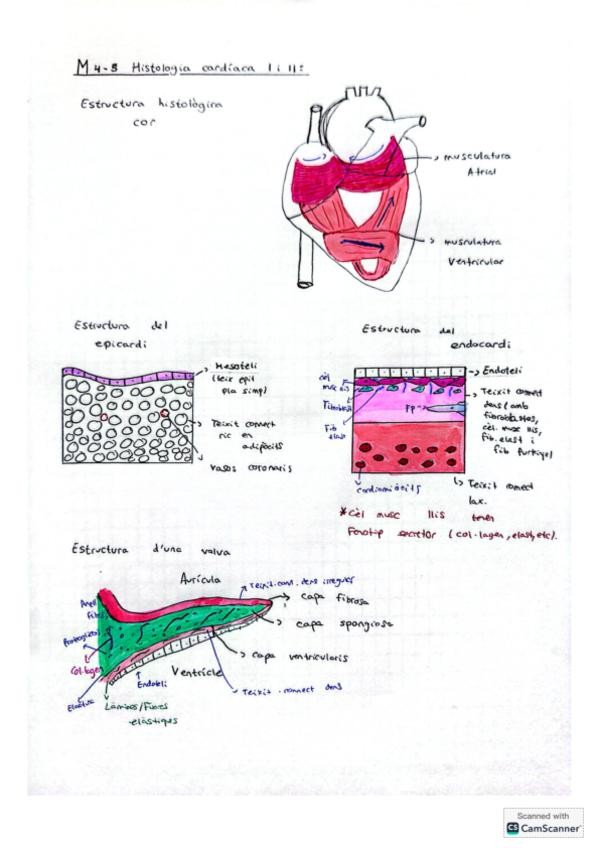 M 4-5 Histologia cardíaca I i II:
Estructura histològica
cor
musculatura
Atrial
musculatura
Ventricular
Estructura del
epicardi
Mesoteli
(teix epit
pla simpl)
Teixit connect
ric en
adipòcits
vasos coronaris
Estructura del
endocardi
cèl
musc llis
Fibroblast
Fib
elast
FP
Endoteli
Teixit connect
dens (amb
fibroblastes,
cèl. musc llis,
fib. elast i
fib Purkinje)
cardiomiòcits
Teixit connect
lax.
*Cèl musc llis tenen
Fenotip secretor (col·lagen, elast, etc).
Estructura d'una valva
Aurícula
Teixit. conn. dens irregular
Anell
fibrós
capa fibrosa
Proteoglicans
capa spongiosa
Col·lagen
capa ventricularis
Ventricle
Endoteli
Teixit. connect dens
Elastina
Làmines/Fibres
elàstiques
Scanned with
CS CamScanner